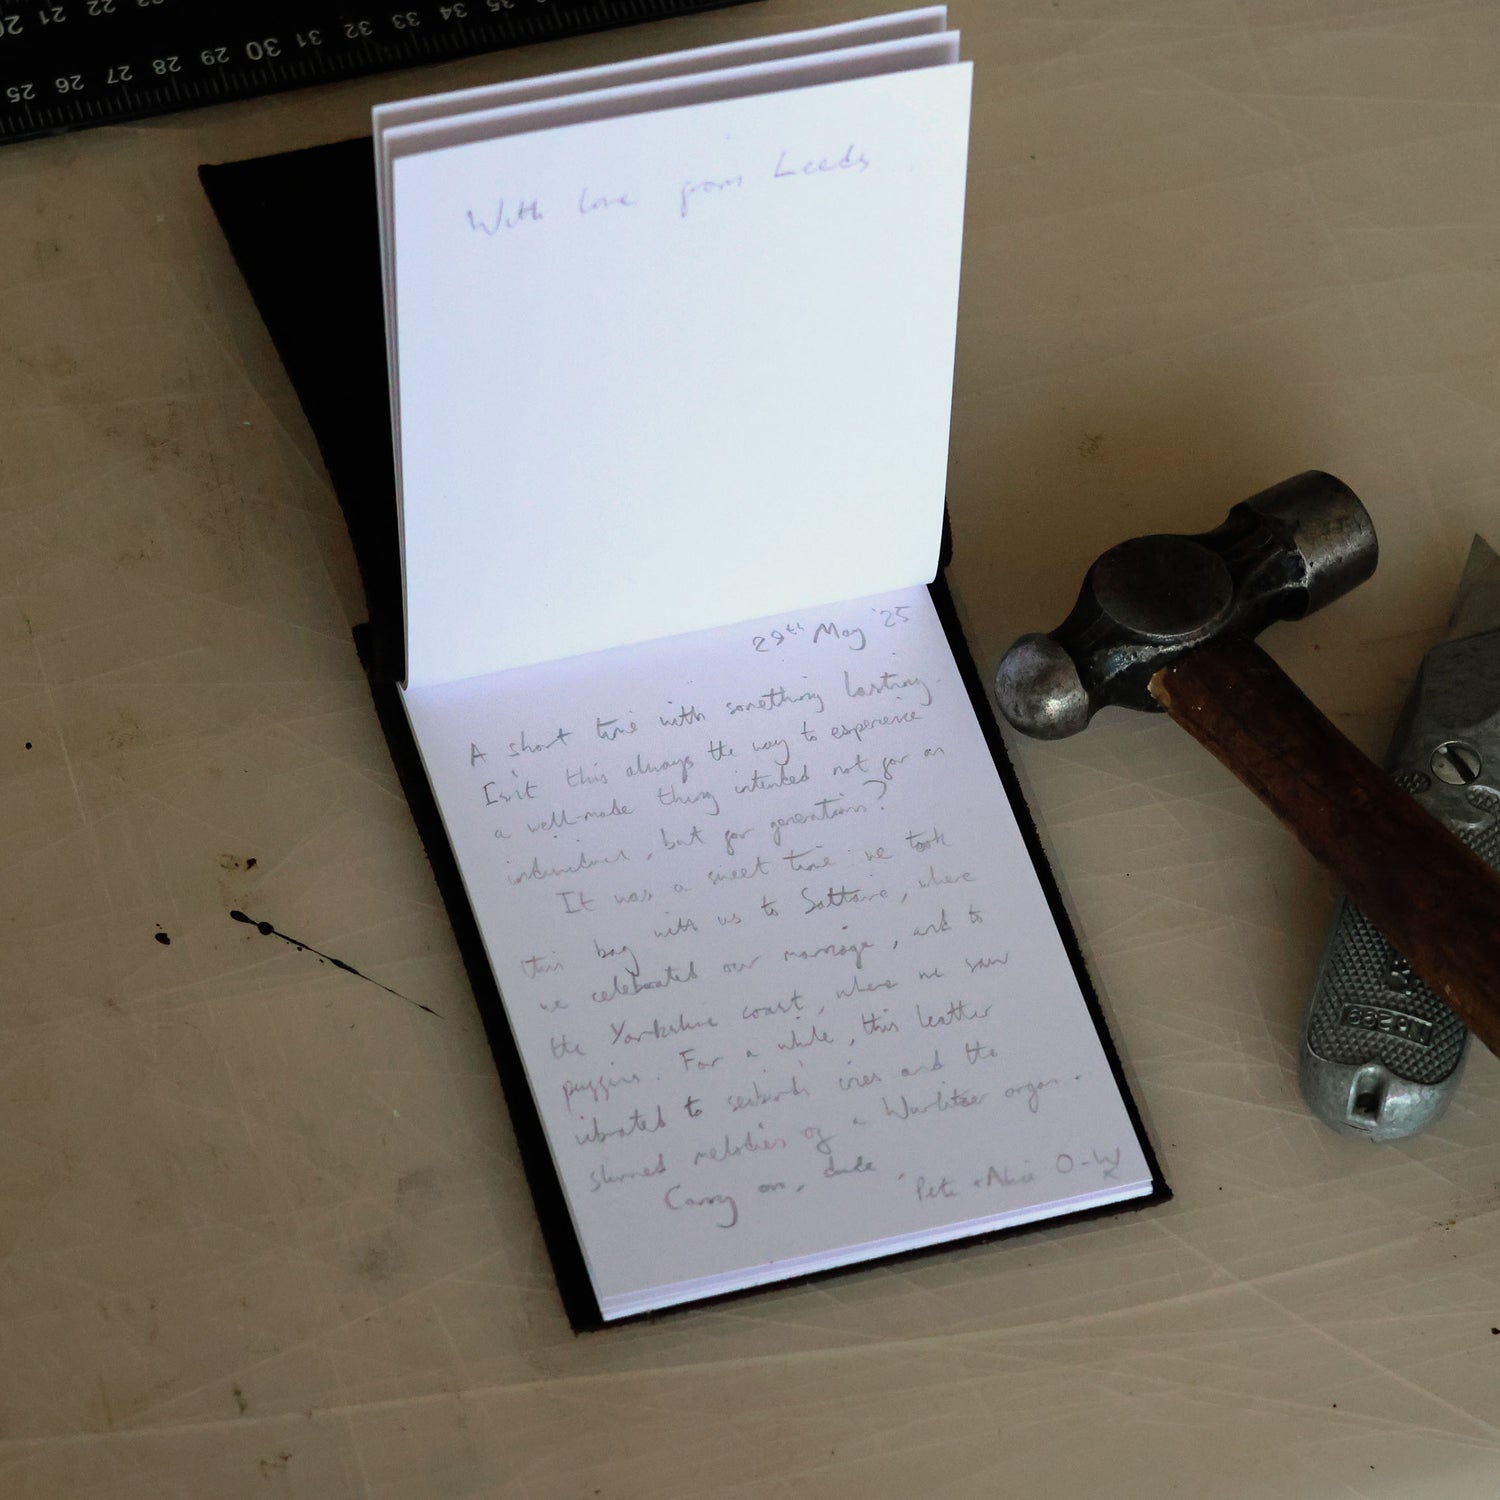 20 21 22 23 32 33 34 35
25 26 27 28 29 30 31 32 33 34 35
With love from Leeds
29th May '25
A short time with something lasting.
Isn't this always the way to experience
a well-made thing intended not for an
individual, but for generations?
It was a sweet time: we took
this bag with us to Saltaire, where
we celebrated our marriage, and to
the Yorkshire coast, where we saw
puffins. For a while, this leather
vibrated to seabirds' cries and the
slurred melodies of a Wurlitzer organ.
Carry on, dude,
Pete + Alice O-W